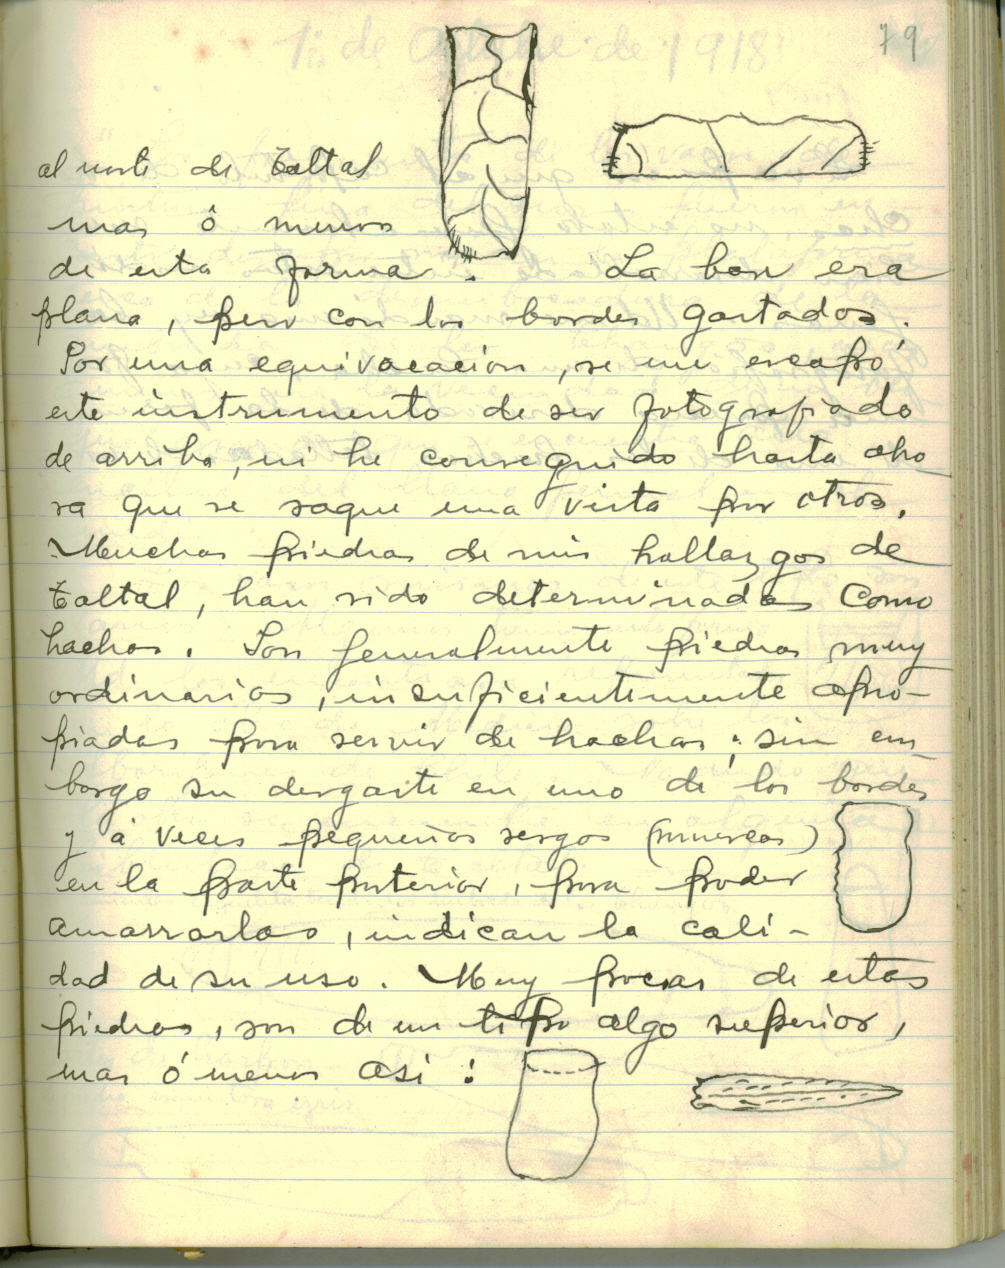 79
1º de Octubre de 1918
al norte de Taltal
mas ó menos
de esta forma. La base era
plana, pero con los bordes gastados.
Por una equivocacion, se me escapó
este instrumento de ser fotografiado
de arriba, ni he conseguido hasta aho
ra que se saque una vista por otros.
Muchas piedras de mis hallazgos de
Taltal, han sido determinadas como
hachas. Son generalmente piedras muy
ordinarias, insuficientemente apro-
piadas para servir de hachas; sin em
bargo su desgaste en uno de los bordes
y á veces pequeños sesgos (muescas)
en la parte posterior, para poder
amarrarlas, indican la cali-
dad de su uso. Muy pocas de estas
piedras, son de un tipo algo superior,
mas ó menos asi: